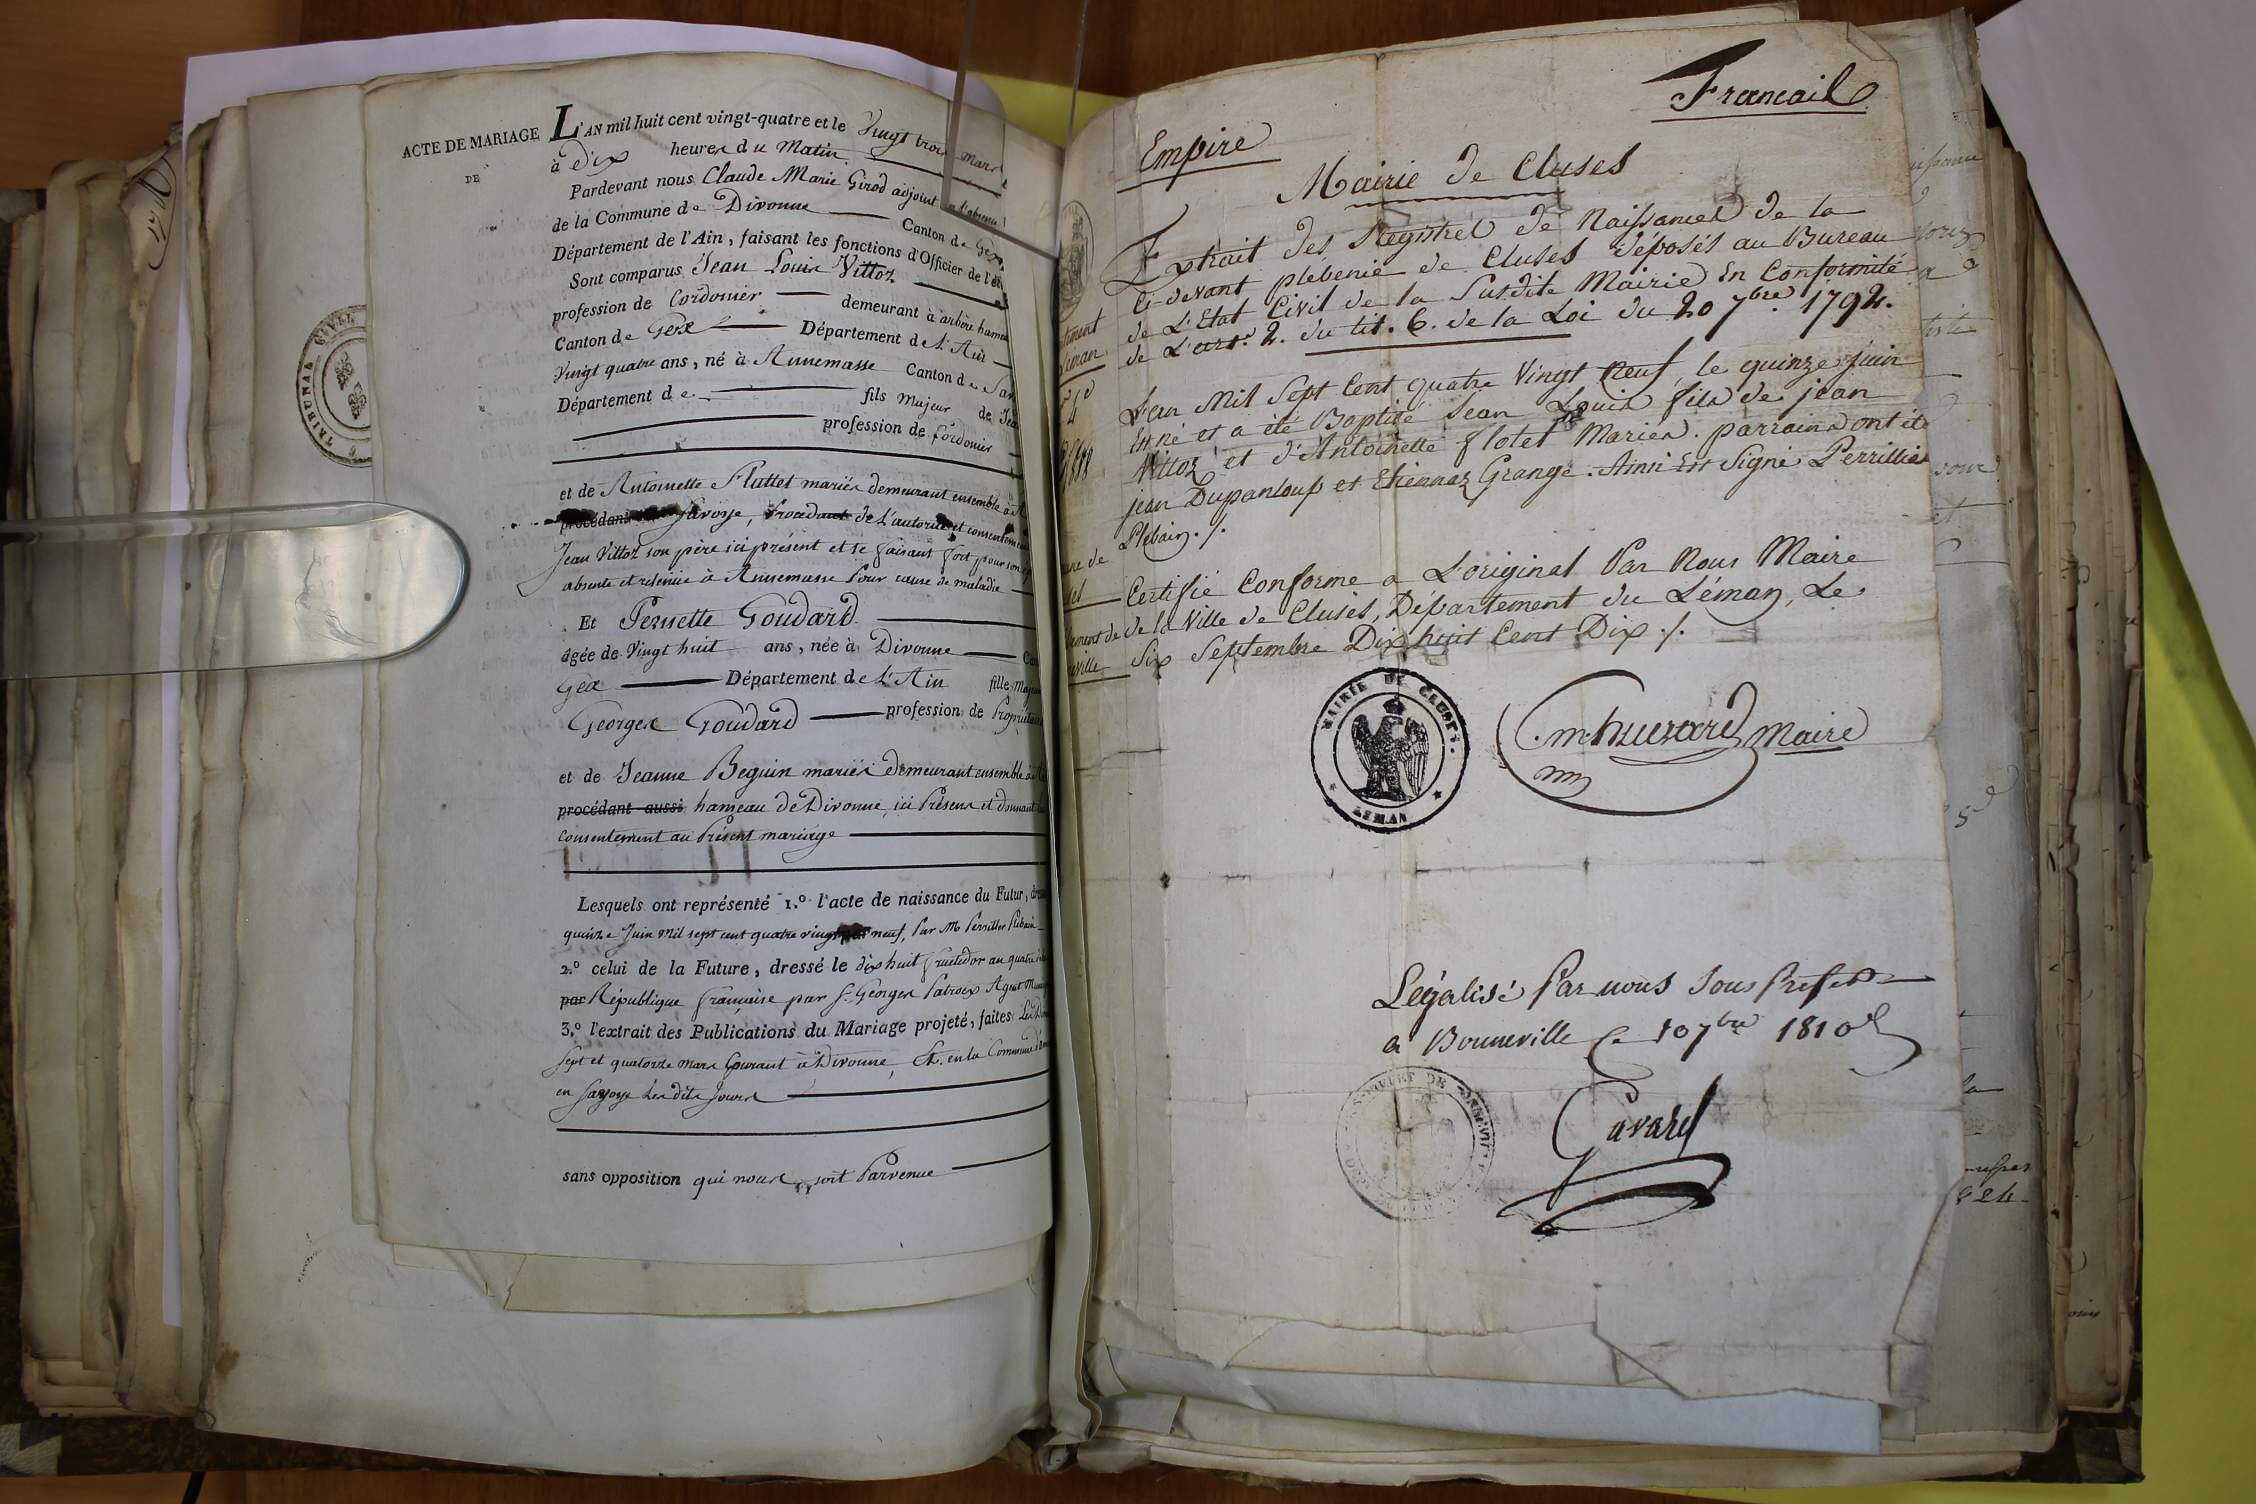 ACTE DE MARIAGE
DE
L'AN mil huit cent vingt-quatre et le Vingt trois Mars
à dix heures du Matin.
Pardevant nous Claude Marie Girod adjoint
de la Commune de Divonne Canton de Gex
Département de l'Ain, faisant les fonctions d'Officier de l'ét
Sont comparus Jean Louis Vittoz
profession de Cordonier demeurant à arbère hameau
Canton de Gex Département de L'Ain
Vingt quatre ans, né à Annemasse Canton de
Département de fils Majeur de Jean
profession de Cordonier
et de Antoinette Fluttet mariés demeurant ensemble à
procédant Savoye, Procédant de L'autorité et consentement
Jean Vittoz son père ici présent et se faisant fort pour son
absente et retenue à Annemasse Pour cause de maladie
Et Pernette Goudard
âgée de Vingt huit ans, née à Divonne
Gex Département de L'Ain fille Majeure
Georges Goudard profession de Propriétaire
et de Jeanne Beguin mariés demeurant ensemble à
procédant aussi hameau de Divonne, ici Présens et donnant
consentement au Présent mariage
Lesquels ont représenté 1.° l'acte de naissance du Futur,
quinze Juin Mil sept cent quatre vingt neuf, Par M Perrillet Plebain
2.° celui de la Future, dressé le dix huit fructidor an quatre
par République française par Sr. Georges Patroix Agent
3.° l'extrait des Publications du Mariage projeté, faites Les
sept et quatorze mars Courant à Divonne, Et. en la Commune
en Savoye Les dits Jours
sans opposition qui nous soit Parvenue
TRIBUNAL CIVIL
Empire Francais
Mairie de Cluses
Extrait des Registres de Naissances de la
Ci-devant plébenie de Cluses déposés au Bureau
de L'Etat Civil de la Susdite Mairie En Conformité
de L'art. 2. du tit. 6. de la Loi du 20 7bre. 1792.
L'an Mil Sept Cent quatre Vingt Neuf, le quinze juin
Est né et a été Baptisé Jean Louis fils de jean
Vittoz et d'Antoinette flotet Mariés. parrains ont été
jean Dupanloup et Etiennaz Grange. Ainsi Est Signé Perrillet
Plebain ./.
Certifié Conforme a L'original Par Nous Maire
de la Ville de Cluses, Département du Léman, Le
Six Septembre Dix huit Cent Dix ./.
MAIRIE DE CLUSES.
LEMAN
Maire
Légalisé Par nous Sous Prefet
a Bonneville Le 10 7bre 1810
Gavard